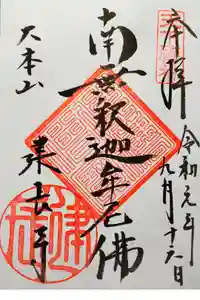 奉拝
令和元年
九月十六日
南無釋迦牟尼佛
大本山
建長寺